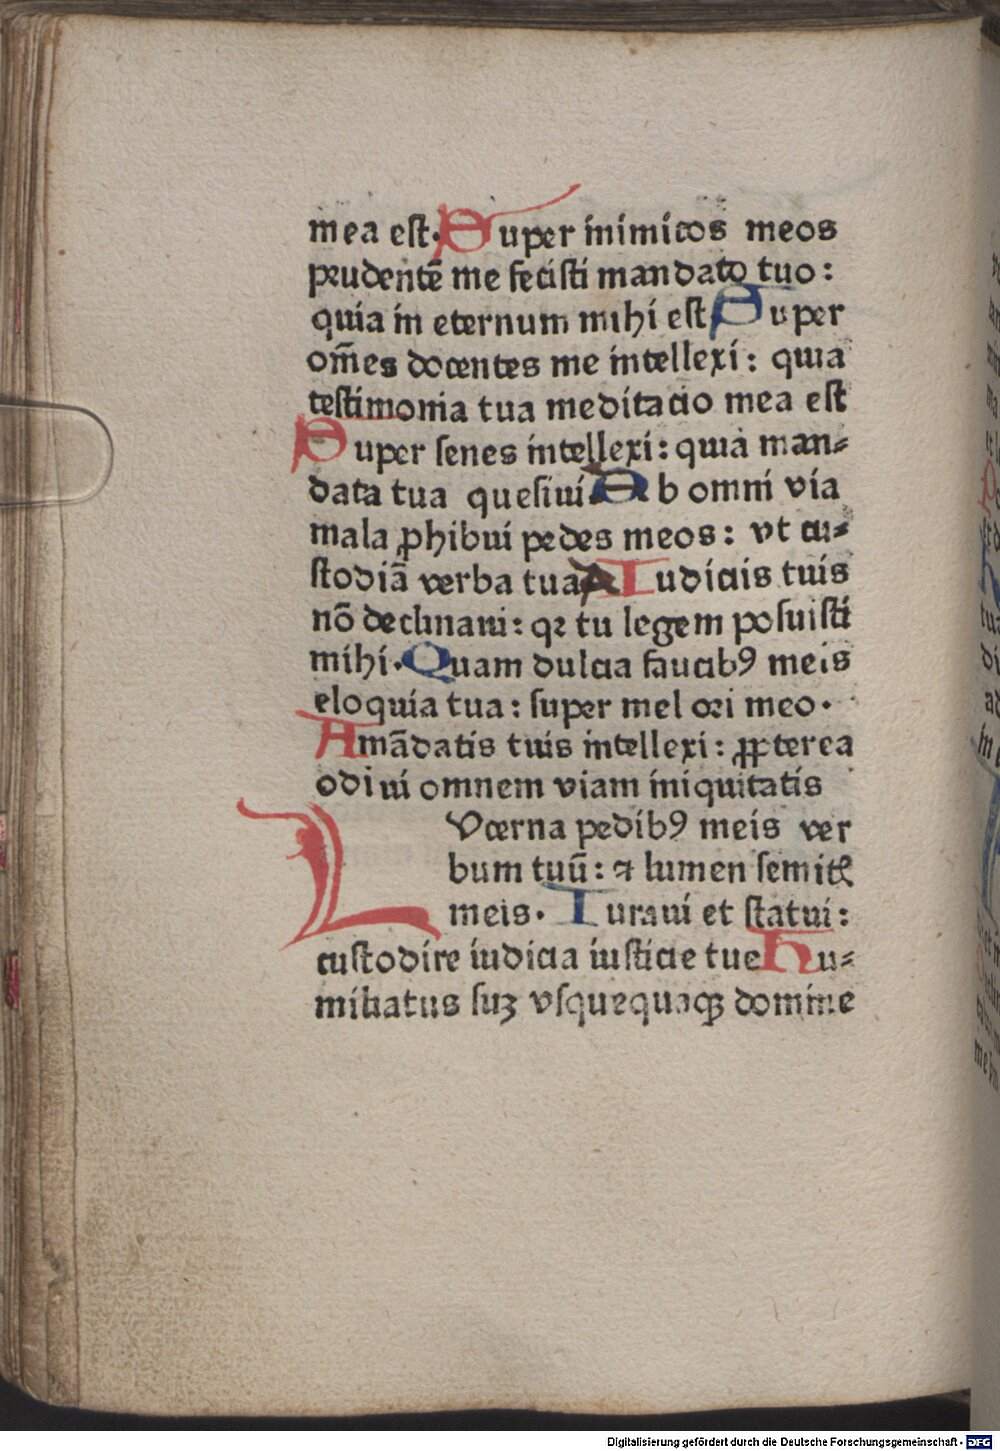 mea est. Super inimicos meos
prudentē me fecisti mandato tuo:
quia in eternum mihi est Super
om̄es docentes me intellexi: quia
testimonia tua meditacio mea est
Super senes intellexi: quia man=
data tua quesiui. Ab omni via
mala ꝓhibui pedes meos: vt cu=
stodiā verba tua A Iudiciis tuis
nō declinaui: qꝛ tu legem posuisti
mihi. Quam dulcia faucibꝰ meis
eloquia tua: super mel ori meo.
A mādatis tuis intellexi: ꝓpterea
odiui omnem viam iniquitatis
LVcerna pedibꝰ meis ver
bum tuū: ⁊ lumen semitꝭ
meis. Iuraui et statui:
custodire iudicia iusticie tue Hu=
miliatus suꝫ vsquequaqꝫ domine
Digitalisierung gefördert durch die Deutsche Forschungsgemeinschaft - DFG